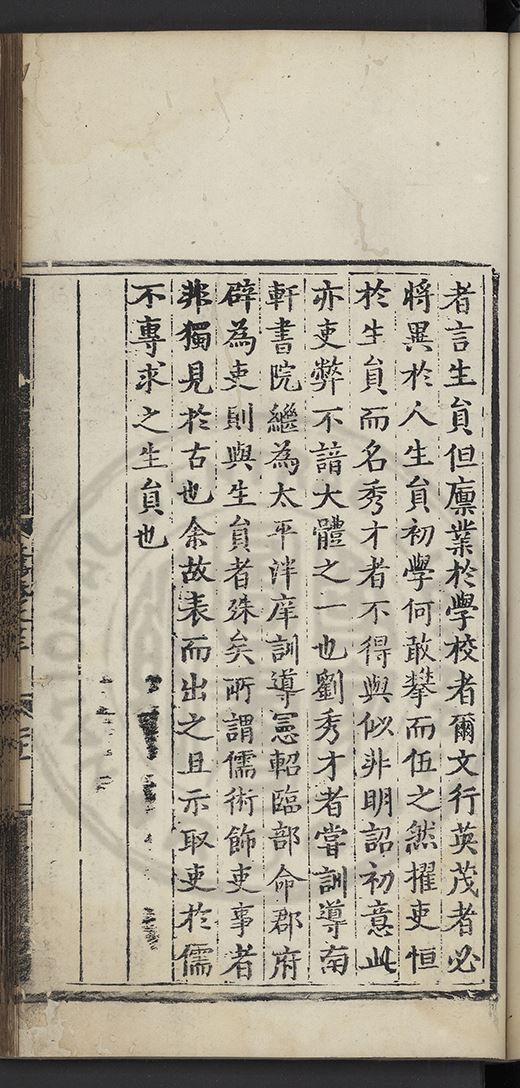 者言生員但廪業於學校者爾文行英茂者必
將異於人生員初學何敢攀而伍之然擢吏恒
於生員而名秀才者不得與似非明詔初意此
亦吏弊不諳大體之一也劉秀才者嘗訓導南
軒書院繼為太平泮庠訓導憲軺臨部命郡府
辟為吏則與生員者殊矣所謂儒術飾吏事者
非獨見於古也余故表而出之且示取吏於儒
不專求之生員也